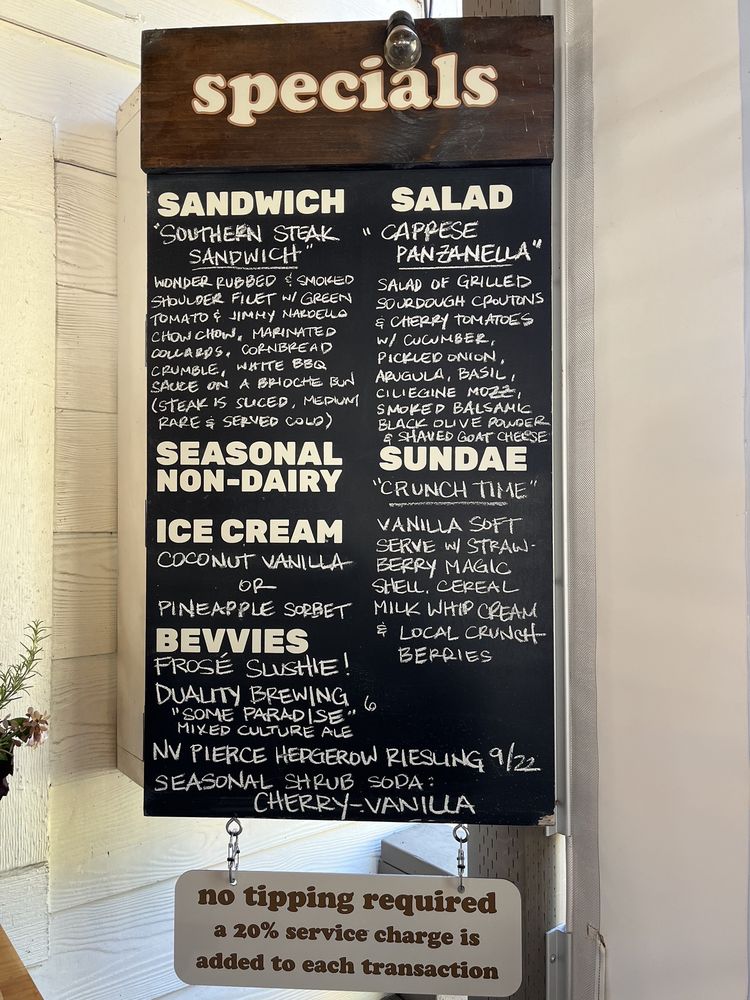 specials
SANDWICH
"SOUTHERN STEAK
SANDWICH"
WONDER RUBBED & SMOKED
SHOULDER FILET W/ GREEN
TOMATO & JIMMY NARDELLO
CHOW CHOW, MARINATED
COLLARDS, CORNBREAD
CRUMBLE, WHITE BBQ
SAUCE ON A BRIOCHE BUN
(STEAK IS SLICED, MEDIUM
RARE & SERVED COLD)
SEASONAL
NON-DAIRY
ICE CREAM
COCONUT VANILLA
OR
PINEAPPLE SORBET
BEVVIES
FROSÉ SLUSHIE!
DUALITY BREWING 6
"SOME PARADISE"
MIXED CULTURE ALE
NV PIERCE HEDGEROW RIESLING 9/22
SEASONAL SHRUB SODA:
CHERRY-VANILLA
SALAD
"CAPRESE
PANZANELLA"
SALAD OF GRILLED
SOURDOUGH CROUTONS
& CHERRY TOMATOES
W/ CUCUMBER,
PICKLED ONION,
ARUGULA, BASIL,
CILIEGINE MOZZ,
SMOKED BALSAMIC
BLACK OLIVE POWDER
& SHAVED GOAT CHEESE
SUNDAE
"CRUNCH TIME"
VANILLA SOFT
SERVE W/ STRAW-
BERRY MAGIC
SHELL, CEREAL
MILK WHIP CREAM
& LOCAL CRUNCH
BERRIES
no tipping required
a 20% service charge is
added to each transaction